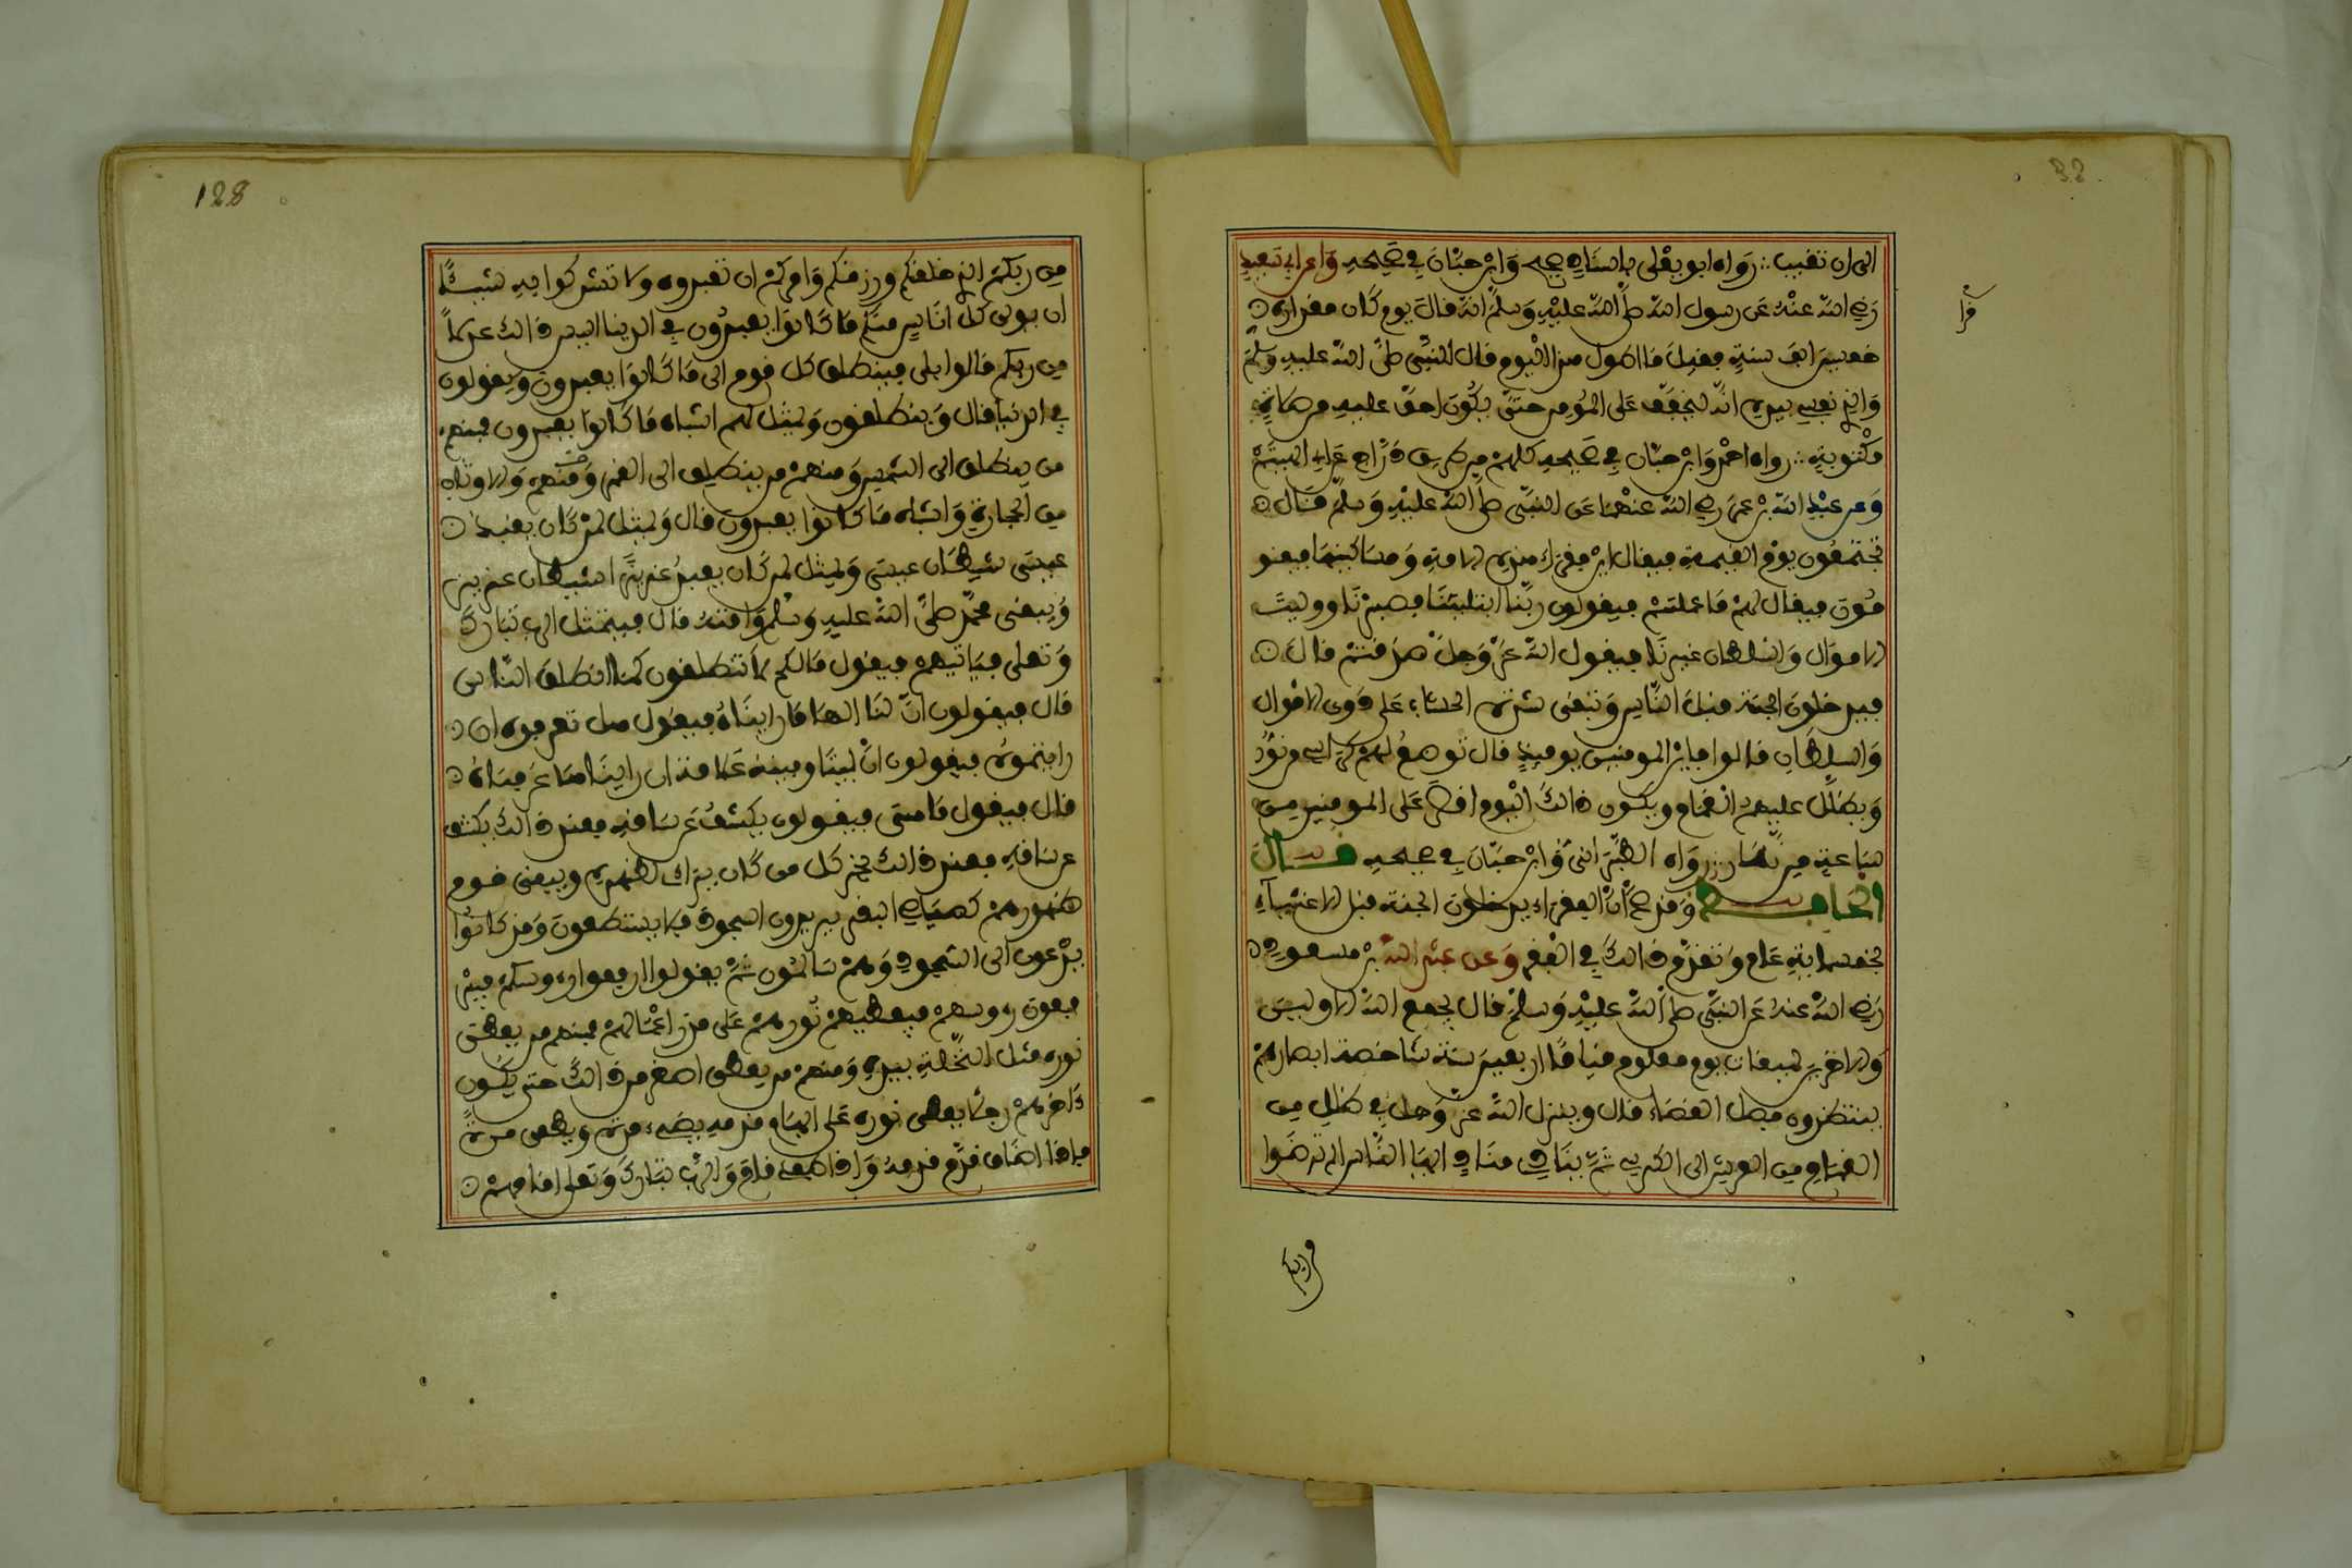 الى ان تغيب رواه ابو يعلى باسناد صحيح وابن حبان في صحيحه وعن ابي سعيد
رضي الله عنه عن رسول الله صلى الله عليه وسلم انه قال يوم كان مقداره
خمسين الف سنة فقيل ما اطول هذا اليوم قال النبي صلى الله عليه وسلم
والذي نفسي بيده انه ليخفف على المومن حتى يكون اخف عليه من صلاة
مكتوبة رواه احمد وابن حبان في صحيحه كلهم من طريق دراج عن ابي الهيثم
وعن عبد الله بن عمر رضي الله عنهما عن النبي صلى الله عليه وسلم قال
تجتمعون يوم القيمة فيقال اين فقراء هذه الامة ومساكينها فيقو
مون فيقال لهم ما عملتم فيقولون ربنا ابتليتنا فصبرنا ووليت
الاموال والسلطان غيرنا فيقول الله عز وجل صدقتم قال
فيدخلون الجنة قبل الناس وتبقى شدة الحساب على ذوي الاموال
والسلطان قالوا فاين المومنين يوميذ قال توضع لهم كراسي من نور
ويظلل عليهم الغمام ويكون ذالك اليوم اقصر على المومنين من
ساعة من نهار رواه الطبراني وابن حبان في صحيحه قال
الحافظ وقد صح ان الفقراء يدخلون الجنة قبل الاغنياء
بخمسماية عام وتقدم ذالك في الفقر وعن عبد الله بن مسعود
رضي الله عنه عن النبي صلى الله عليه وسلم قال يجمع الله الاولين
والاخرين لميقات يوم معلوم قياما اربعين سنة شاخصة ابصارهم
ينتظرون فصل القضاء قال وينزل الله عز وجل في ظلل من
الغمام من العرش الى الكرسي ثم ينادي مناد ايها الناس الم ترضوا
من ربكم
32
128
من ربكم الذي خلقكم ورزقكم وامركم ان تعبدوه ولا تشركوا به شيئا
ان يولي كل اناس منكم ما كانوا يعبدون في الدنيا اليس ذالك عدلا
من ربكم قالوا بلى فينطلق كل قوم الى ما كانوا يعبدون ويقولون
في الدنيا قال وينطلقون ويمثل لهم اشباه ما كانوا يعبدون فمنهم
من ينطلق الى الشمس ومنهم من ينطلق الى القمر ومنهم والاوثان
من الحجارة واشباه ما كانوا يعبدون قال ويمثل لمن كان يعبد
عيسى شيطان عيسى ويمثل لمن كان يعبد عزيرا شيطان عزير
ويبقى محمد صلى الله عليه وسلم وامته قال فيتمثل الرب تبارك
وتعلى فياتيهم فيقول مالكم لا تنطلقون كما انطلق الناس
قال فيقولون ان لنا الها ما رايناه فيقول هل تعرفونه ان
رايتموه فيقولون ان بيننا وبينه علامة ان رايناها عرفناه
قال فيقول ما هي فيقولون يكشف عن ساقه فعند ذالك يكشف
عن ساقه فعند ذالك يخر كل من كان يراءي لظهره ويبقى قوم
ظهورهم كصياصي البقر يريدون السجود فلا يستطعون وقد كانوا
يدعون الى السجود وهم سالمون ثم يقولوا ارفعوا روسكم فير
فعون روسهم فيعطيهم نورهم على قدر اعمالهم فمنهم من يعطى
نوره مثل النخلة بيده ومنهم من يعطى اصغر من ذالك حتى يكون
ءاخرهم رجلا يعطى نوره على ابهام قدمه يضيء مرة ويطفى مرة
فاذا اضاء قدم قدمه واذا طفي قام والرب تبارك وتعلى امامهم